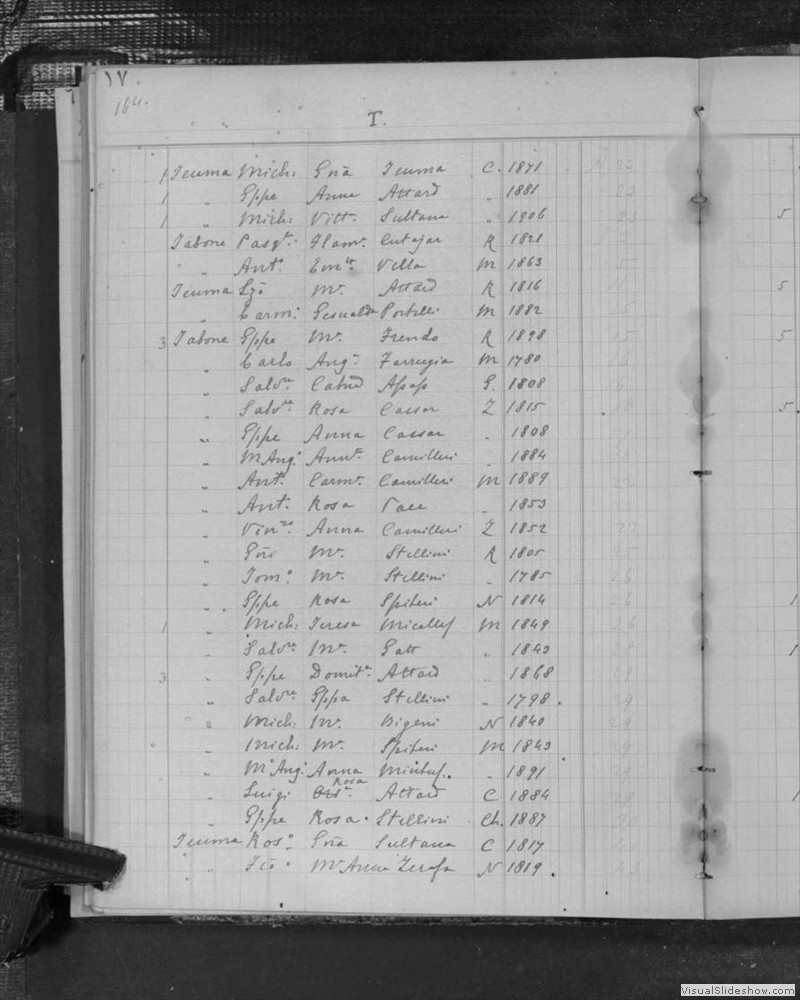 17.
164.
T.
1 Teuma Mich: Gña Teuma C. 1871 23
1 " Gppe Anna Attard " 1881 23
1 " Mich: Vitt. Sultana " 1906 23 5
Tabone Pasqe. Flamr. Cutajar R 1821
" Anto. Emla. Vella M 1863
Teuma Lzo Mr. Attard R 1816 5
" Carm: Gesualda Portelli M 1882
3 Tabone Gppe Mr. Frendo R 1898 5
" Carlo Anga. Farrugia M 1780
" Salvre. G. 1808
" Salvre. Rosa Cassar Z 1815 5.
" Gppe Anna Cassar " 1808
" M Ang: Annta. Camilleri " 1884
" Ant. Carmr. Camilleri M 1889
" Ant. Rosa Pace " 1853
" Vinzo. Anna Camilleri Z 1852
" Gñi Mr. Stellini R 1805 25
" Tomo. Mr. Stellini " 1785 26
" Gppe Rosa Spiteri N 1814 26 1
1 " Mich: Teresa Micallef M 1849 26
" Salvre. Mr. Gatt " 1843 1
3 " Gppe Domita. Attard " 1868
" Salvre. Gppa Stellini " 1798. 29
" Mich: Mr. Bigeni N 1840 29
" Mich: Mr. Spiteri M 1843
" M Ang: Anna " 1891
" Luigi Rosa Attard C 1884 1
" Gppe Rosa. Stellini Ch. 1887
Teuma Roso. Gña Sultana C 1817
" Mr Anna Zerafa N 1819.
VisualSlideshow.com